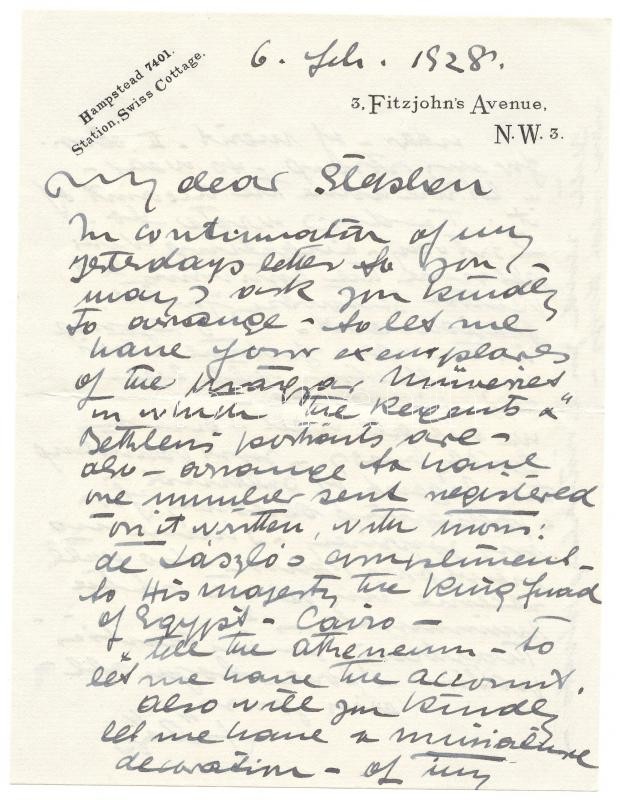 Hampstead 7401.
Station, Swiss Cottage.
6. Feb. 1928.
3, Fitzjohn's Avenue,
N.W. 3.
My dear Stephen
In continuation of my
yesterdays letter to you -
may I ask you kindly
to arrange - to let me
have four exemplares
of the Magyar Müveszet
in which "the Regents &"
Bethlen's portraits are -
also - arrange to have
one number sent registered
- on it written, with Mons:
de László's compliment -
to His Majesty the King Fuad
of Egypt - Cairo -
" tell the atheneum - to
let me have the account.
also will you kindly
let me have a miniature
decoration - of my